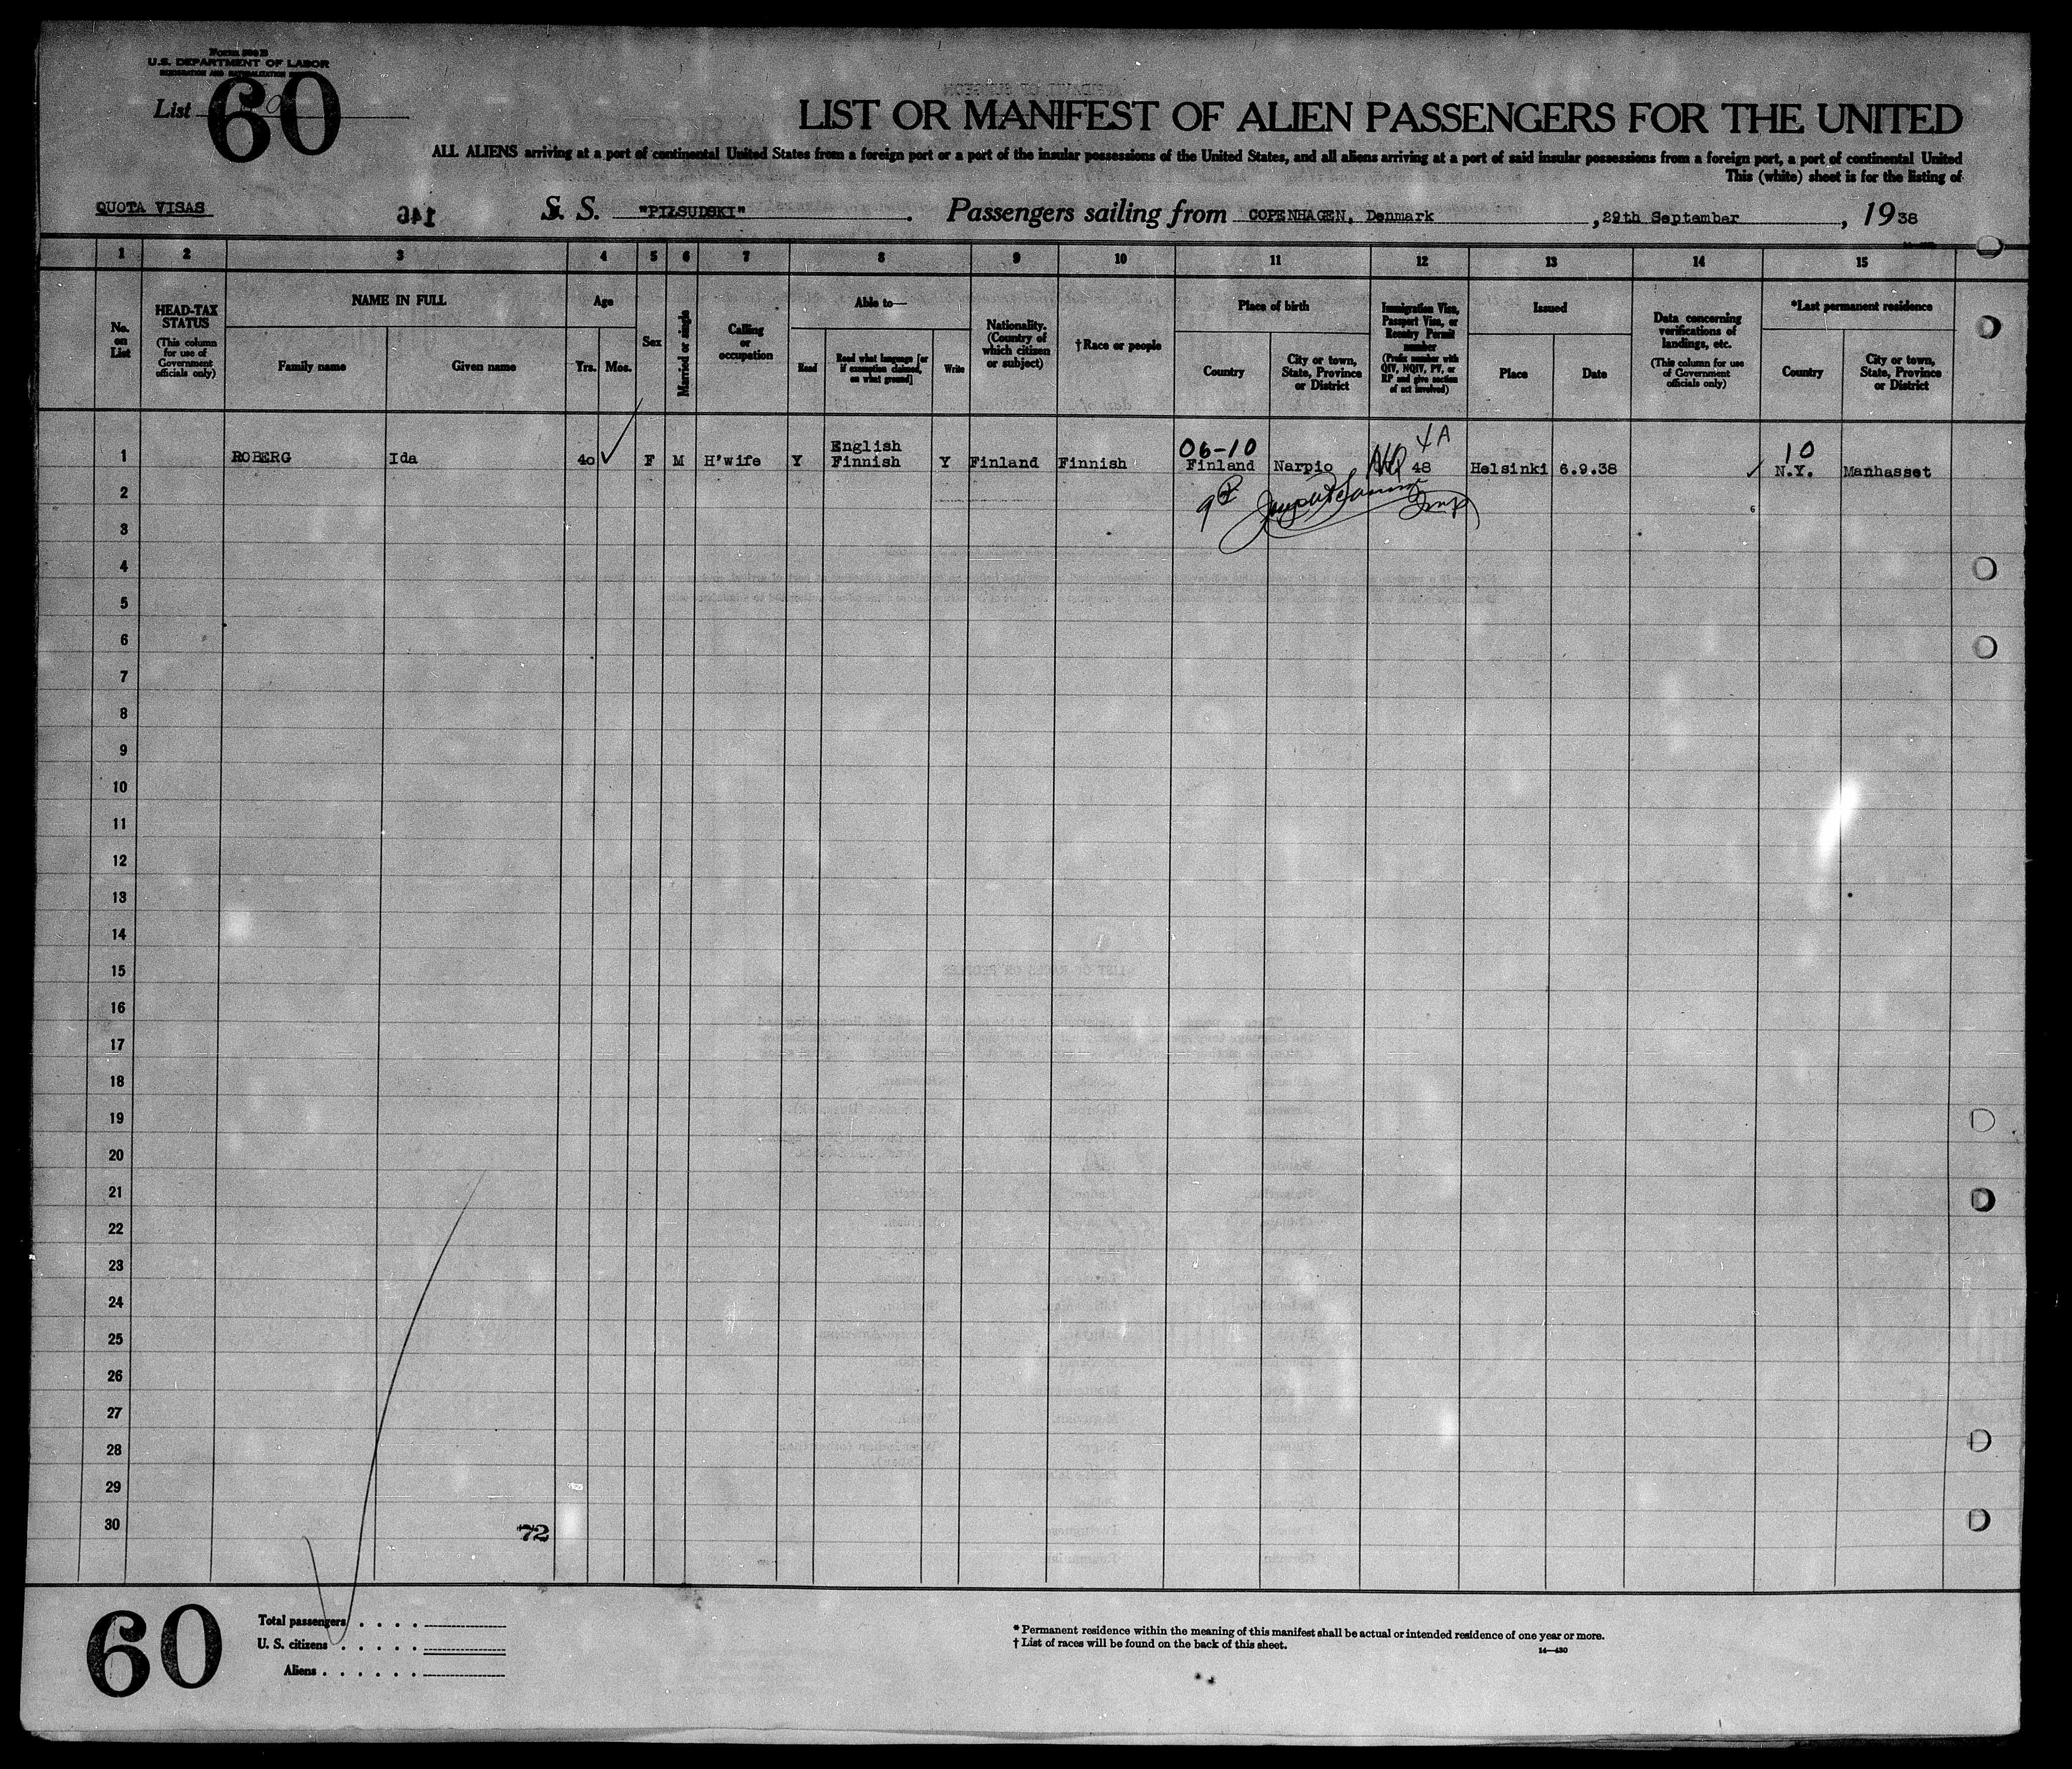 Form 500 B
U.S. DEPARTMENT OF LABOR
IMMIGRATION AND NATURALIZATION
List 60
LIST OR MANIFEST OF ALIEN PASSENGERS FOR THE UNITED
ALL ALIENS arriving at a port of continental United States from a foreign port or a port of the insular possessions of the United States, and all aliens arriving at a port of said insular possessions from a foreign port, a port of continental United
This (white) sheet is for the listing of
QUOTA VISAS 146 S. S. "PIŁSUDSKI". Passengers sailing from COPENHAGEN, Denmark, 29th September, 1938
1 2 3 4 5 6 7 8 9 10 11 12 13 14 15
No. on List
HEAD-TAX STATUS (This column for use of Government officials only)
NAME IN FULL
Family name Given name
Age
Yrs. Mos.
Sex
Married or single
Calling or occupation
Able to—
Read Read what language [or if exemption claimed, on what ground] Write
Nationality. (Country of which citizen or subject)
†Race or people
Place of birth
Country City or town, State, Province or District
Immigration Visa, Passport Visa, or Reentry Permit number (Prefix number with QIV, NQIV, PV, or RP and give section of act involved)
Issued
Place Date
Data concerning verifications of landings, etc. (This column for use of Government officials only)
*Last permanent residence
Country City or town, State, Province or District
06-10 4A 10
1 ROBERG Ida 40 F M H'wife Y English Finnish Y Finland Finnish Finland Narpio 48 Helsinki 6.9.38 N.Y. Manhasset
2
3
4
5
6
7
8
9
10
11
12
13
14
15
16
17
18
19
20
21
22
23
24
25
26
27
28
29
30
72
60
Total passengers . . . .
U. S. citizens . . . . .
Aliens . . . . . .
* Permanent residence within the meaning of this manifest shall be actual or intended residence of one year or more.
† List of races will be found on the back of this sheet.
14—430